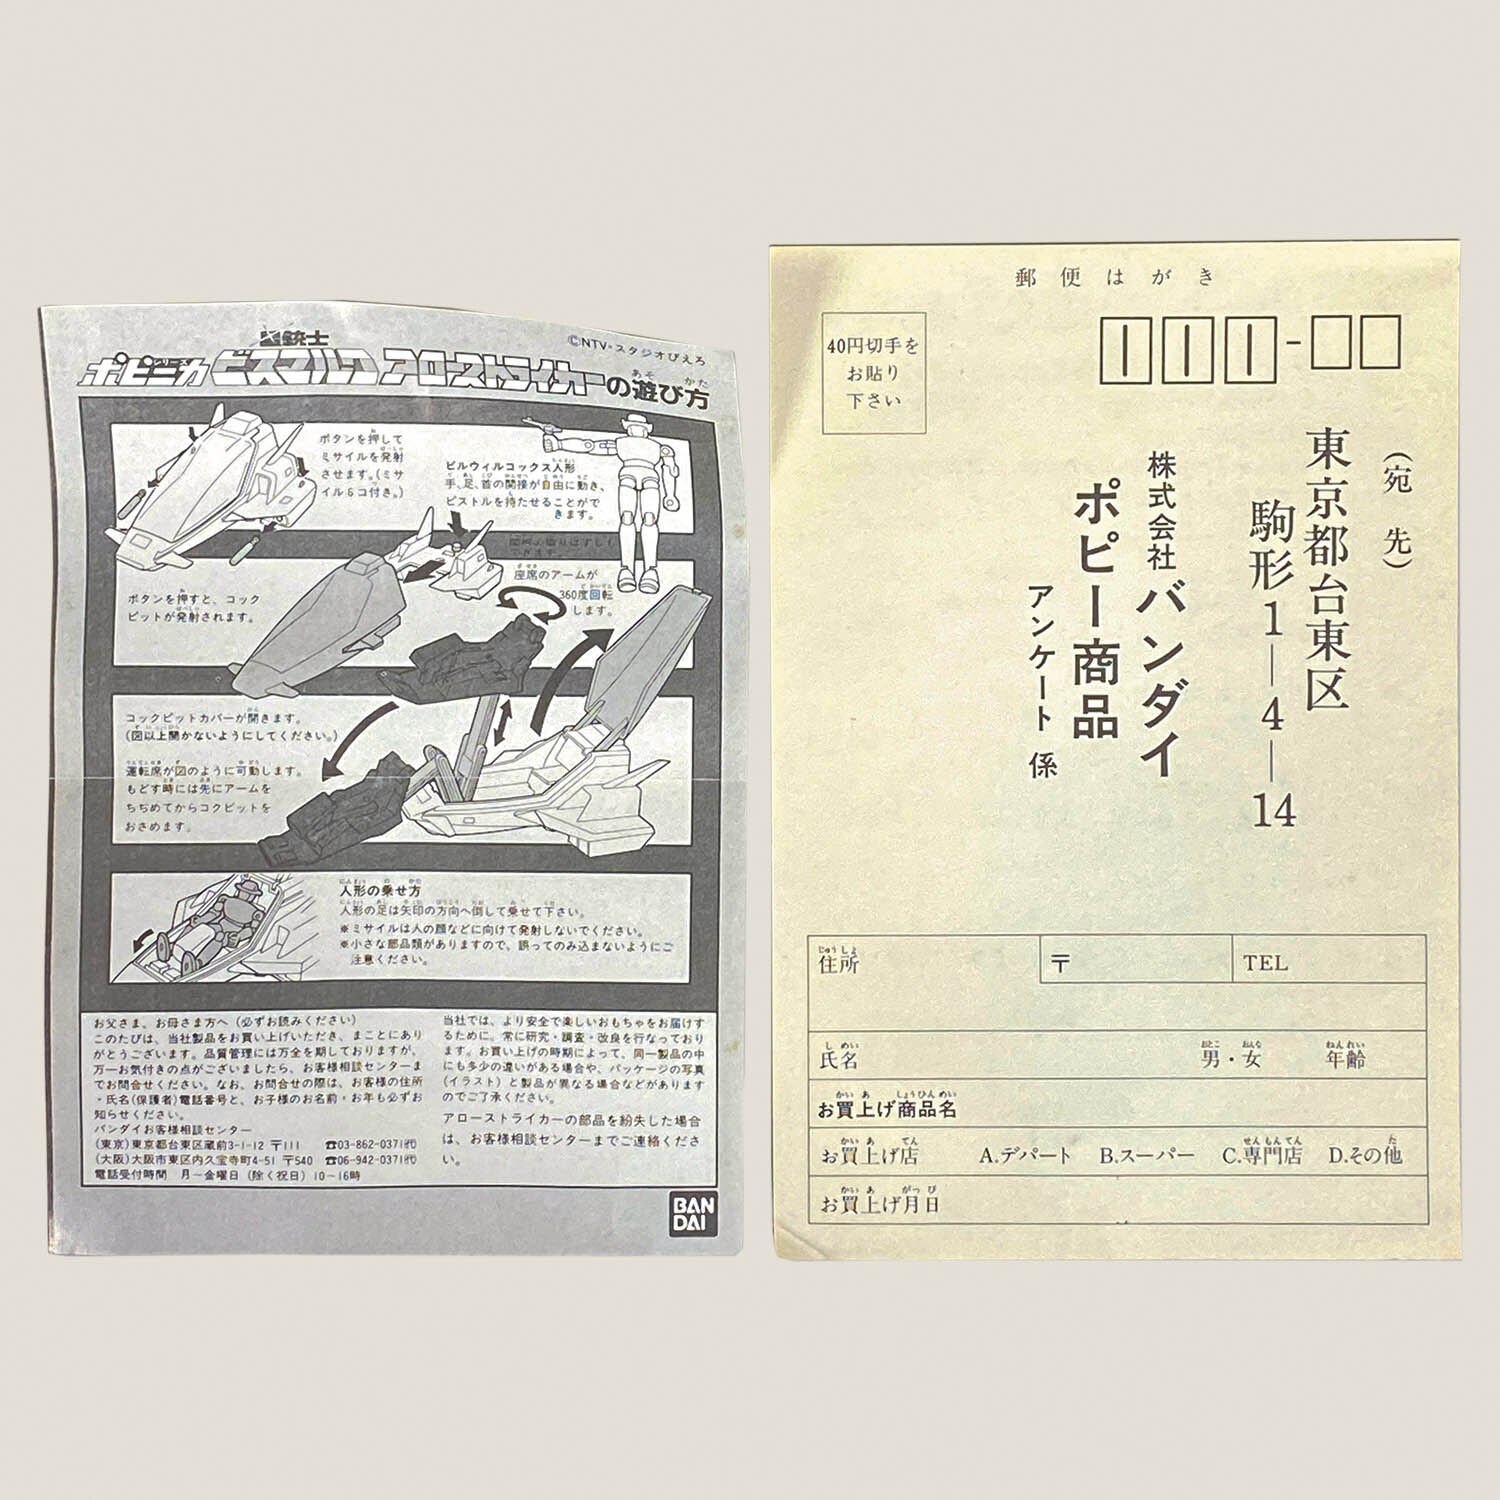 星銃士
ポピニカシリーズ ビスマルク アローストライカーの遊び方
©NTV・スタジオぴえろ
ボタンを押して
ミサイルを発射
させます。(ミサ
イル6コ付き。)
ビルウィルコックス人形
手、足、首の関接が自由に動き、
ピストルを持たせることがで
きます。
ボタンを押すと、コック
ピットが発射されます。
座席のアームが
360度回転
します。
コックピットカバーが開きます。
(図以上開かないようにしてください。)
運転席が図のように可動します。
もどす時には先にアームを
ちぢめてからコクピットを
おさめます。
人形の乗せ方
人形の足は矢印の方向へ倒して乗せて下さい。
※ミサイルは人の顔などに向けて発射しないでください。
※小さな部品類がありますので、誤ってのみ込まないようにご
注意ください。
お父さま、お母さま方へ(必ずお読みください)
このたびは、当社製品をお買い上げいただき、まことにあり
がとうございます。品質管理には万全を期しておりますが、
万一お気付きの点がございましたら、お客様相談センターま
でお問合せください。なお、お問合せの際は、お客様の住所
・氏名(保護者)電話番号と、お子様のお名前・お年も必ずお
知らせください。
バンダイお客様相談センター
(東京)東京都台東区蔵前3-1-12 〒111 ☎03-862-0371㈹
(大阪)大阪市東区内久宝寺町4-51 〒540 ☎06-942-0371㈹
電話受付時間 月〜金曜日(除く祝日)10−16時
当社では、より安全で楽しいおもちゃをお届けす
るために、常に研究・調査・改良を行なっており
ます。お買い上げの時期によって、同一製品の中
にも多少の違いがある場合や、パッケージの写真
(イラスト)と製品が異なる場合などがあります
のでご了承ください。
アローストライカーの部品を紛失した場合
は、お客様相談センターまでご連絡くださ
い。
BAN
DAI
郵便はがき
40円切手を
お貼り
下さい
111-
(宛先)
東京都台東区
駒形1―4―14
株式会社バンダイ
ポピー商品
アンケート係
住所
〒
TEL
氏名
男・女
年齢
お買上げ商品名
お買上げ店 A.デパート B.スーパー C.専門店 D.その他
お買上げ月日